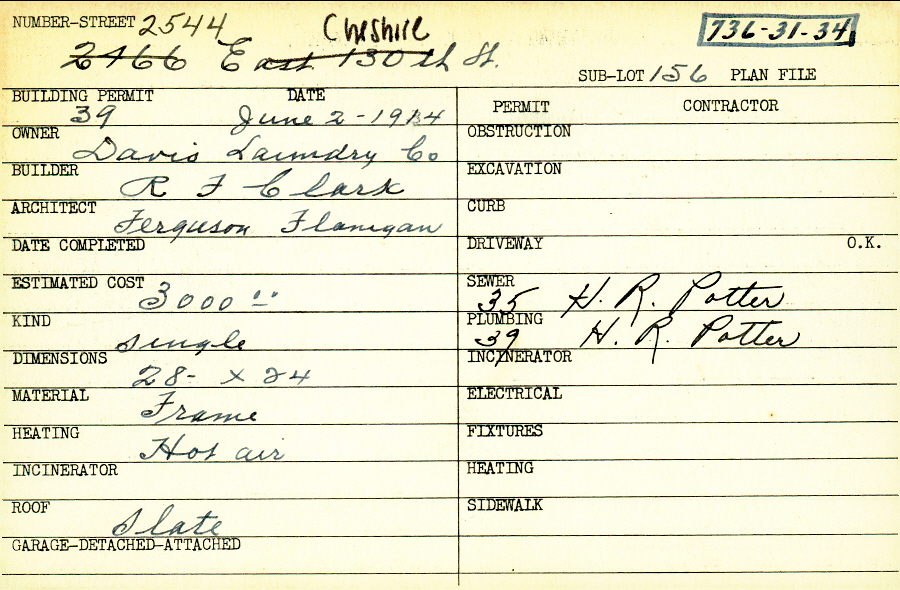 NUMBER-STREET 2544 Cheshire 736-31-34
2466 East 130th St.
SUB-LOT 156 PLAN FILE
BUILDING PERMIT DATE PERMIT CONTRACTOR
39 June 2-1914
OWNER Davis Laundry Co OBSTRUCTION
BUILDER R F Clark EXCAVATION
ARCHITECT Ferguson Flanigan CURB
DATE COMPLETED DRIVEWAY O.K.
ESTIMATED COST 3000 00 SEWER 35 H. R. Potter
KIND Single PLUMBING 39 H. R. Potter
DIMENSIONS 28- x 24 INCINERATOR
MATERIAL Frame ELECTRICAL
HEATING Hot air FIXTURES
INCINERATOR HEATING
ROOF Slate SIDEWALK
GARAGE-DETACHED-ATTACHED